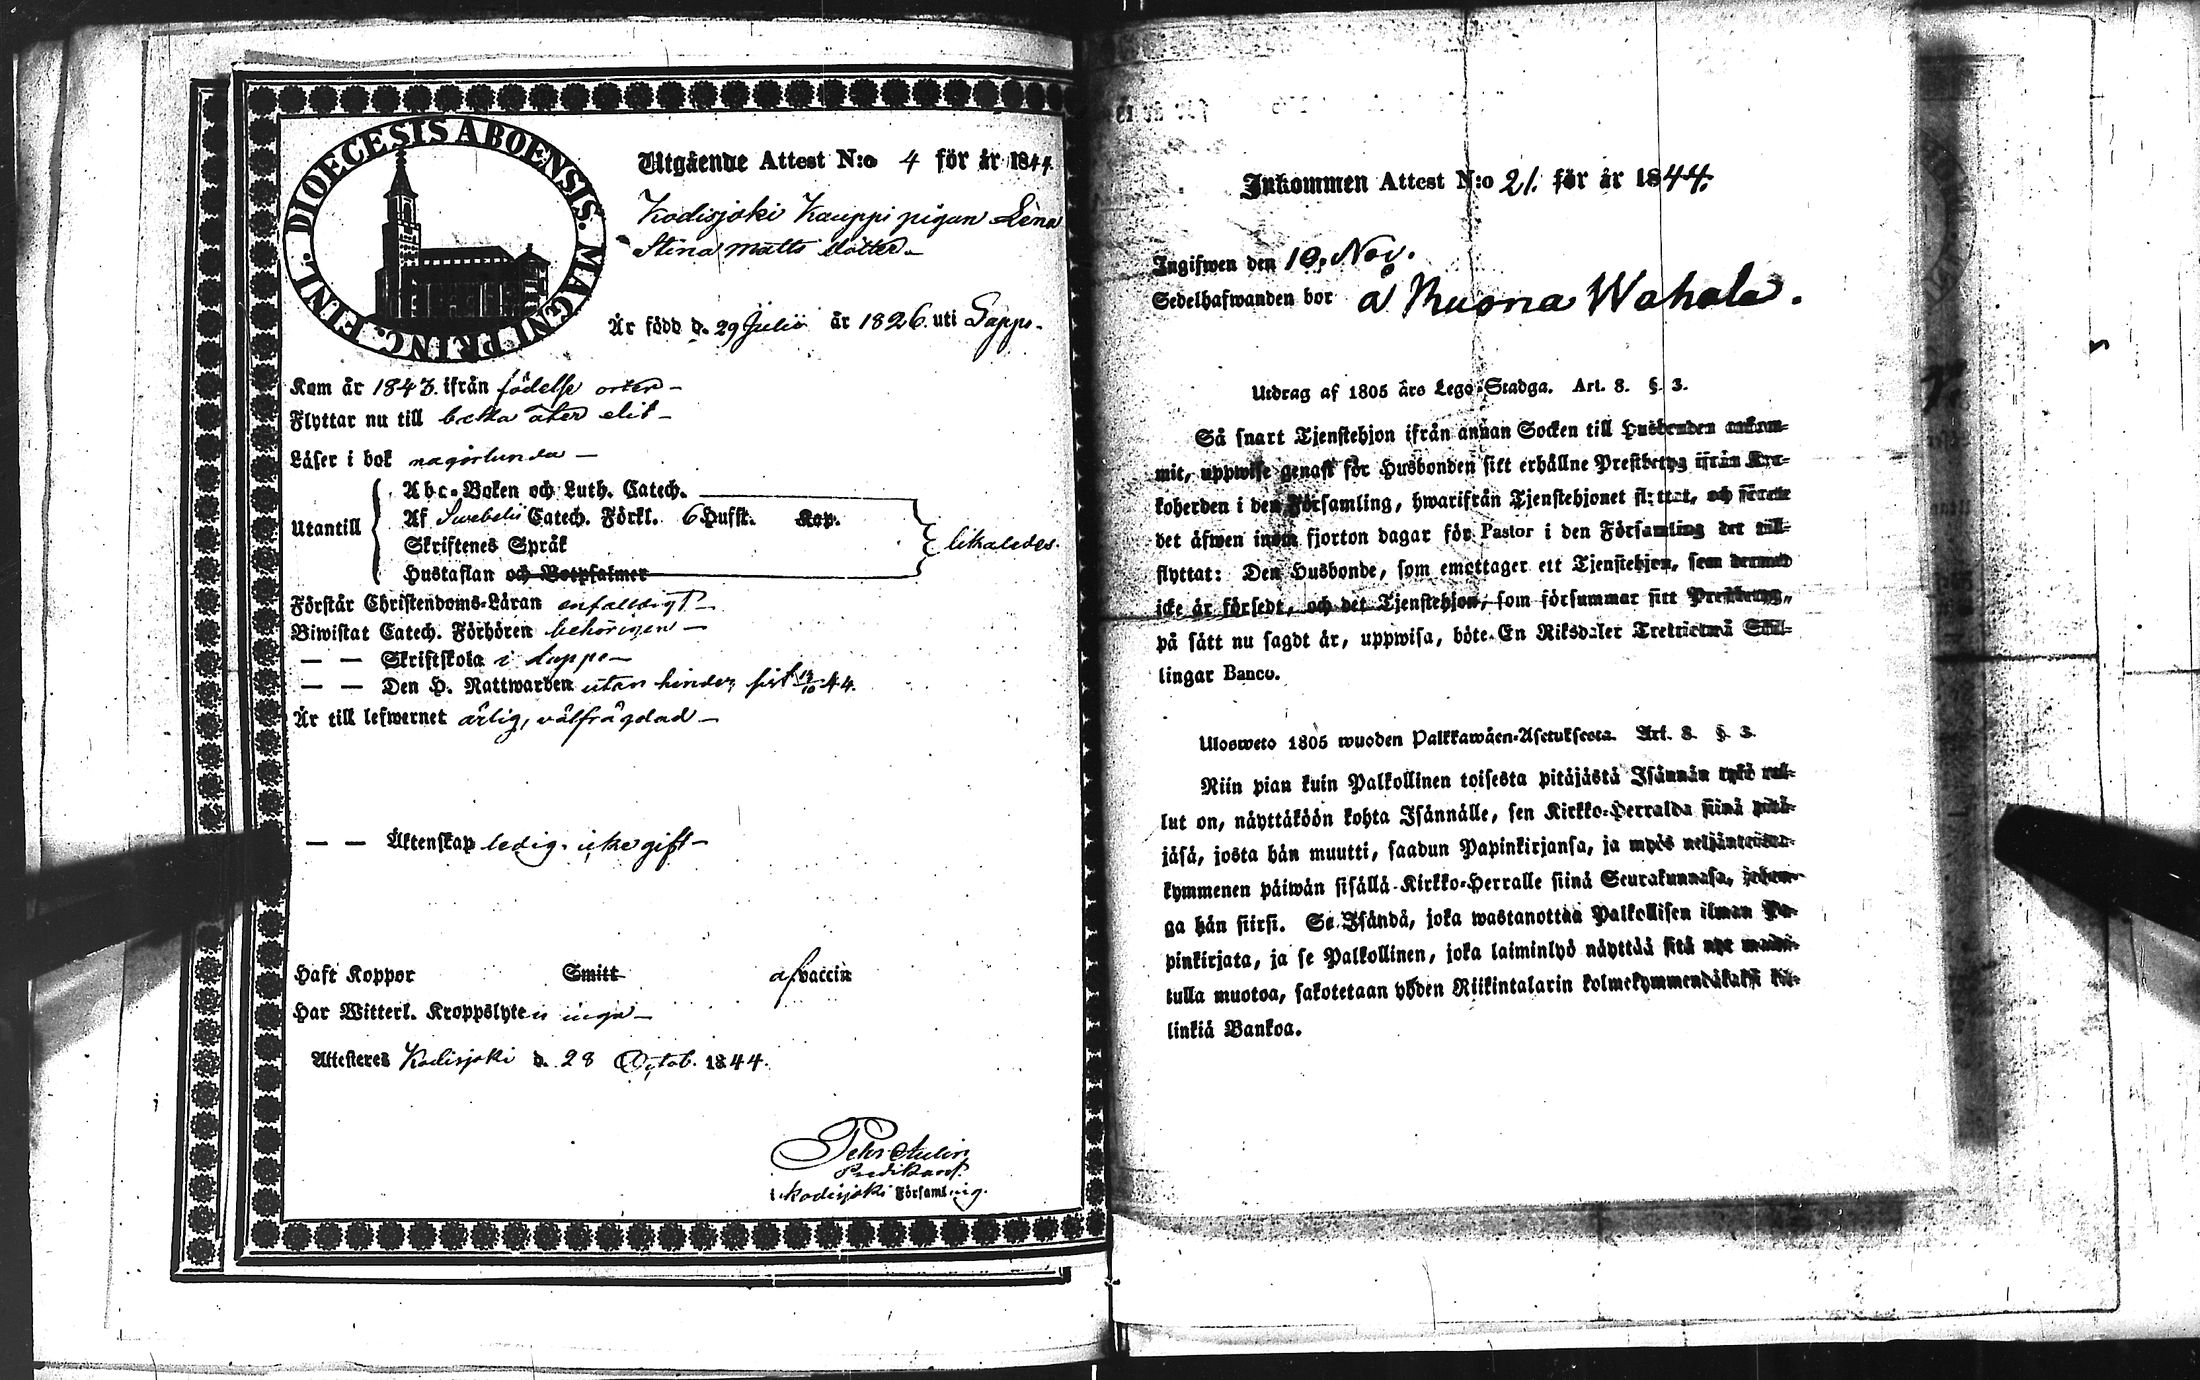 DIOECESIS ABOENSIS. MAGNI PRINC. FINL.
Utgående Attest N:o 4 för år 1844
Kodisjoki Kauppi pigan Lena
Stina Matts dotter
Är född d. 29 Julii år 1826 uti Lappi
Kom år 1843 ifrån födelse orten
Flyttar nu till åter dit
Läser i bok någorlunda
Utantill
Abc-Boken och Luth. Catech.
Af Swebelii Catech. Förkl. 6 Hufst. Kap.
Skriftenes Språk
Hustaflan och Botpsalmer
likaledes
Förstår Christendoms-Läran enfaldigt
Biwistat Catech. Förhören behörigen
— — Skriftskola i Lappi
— — Den H. Nattwarden utan hinder, sist 13/10 44.
Är till lefwernet ärlig, välfrägdad
— — Äktenskap ledig. icke gift
Haft Koppor Smitt af vaccin
Har Witterl. Kroppslyten inga
Attesteres Kodisjoki d. 28 Octob. 1844.
Predikant
i Kodisjoki Församling.
Inkommen Attest N:o 21. för år 1844.
Ingifwen den 10. Nov.
Sedelhafwanden bor å Ruona Wahala.
Utdrag af 1805 års Lego-Stadga. Art. 8. §. 3.
Så snart Tjenstehjon ifrån annan Socken till Husbonden ankom-
mit, uppwise genast för Husbonden sitt erhållne Prestbetyg ifrån Kyr-
koherden i den Församling, hwarifrån Tjenstehjonet flyttat, och förete
det äfwen inom fjorton dagar för Pastor i den Församling det till-
flyttat: Den Husbonde, som emottager ett Tjenstehjon, som dermed
icke är försedt, och det Tjenstehjon, som försummar sitt Prestbetyg,
på sätt nu sagdt är, uppwisa, böte En Riksdaler Tretiotwå Skil-
lingar Banco.
Ulosweto 1805 wuoden Palkkawäen-Asetuksesta. Art. 8. §. 3.
Niin pian kuin Palkollinen toisesta pitäjästä Isännän tykö tul-
lut on, näyttäköön kohta Isännälle, sen Kirkko-Herralda siinä pitä-
jäsä, josta hän muutti, saadun Papinkirjansa, ja myös neljäntoista-
kymmenen päiwän sisällä Kirkko-Herralle siinä Seurakunnasa, johon-
ga hän siirsi. Se Isändä, joka wastanottaa Palkollisen ilman Pa-
pinkirjata, ja se Palkollinen, joka laiminlyö näyttää sitä nyt maini-
tulla muotoa, sakotetaan yhden Riikintalarin kolmekymmendäkaksi kil-
linkiä Bankoa.